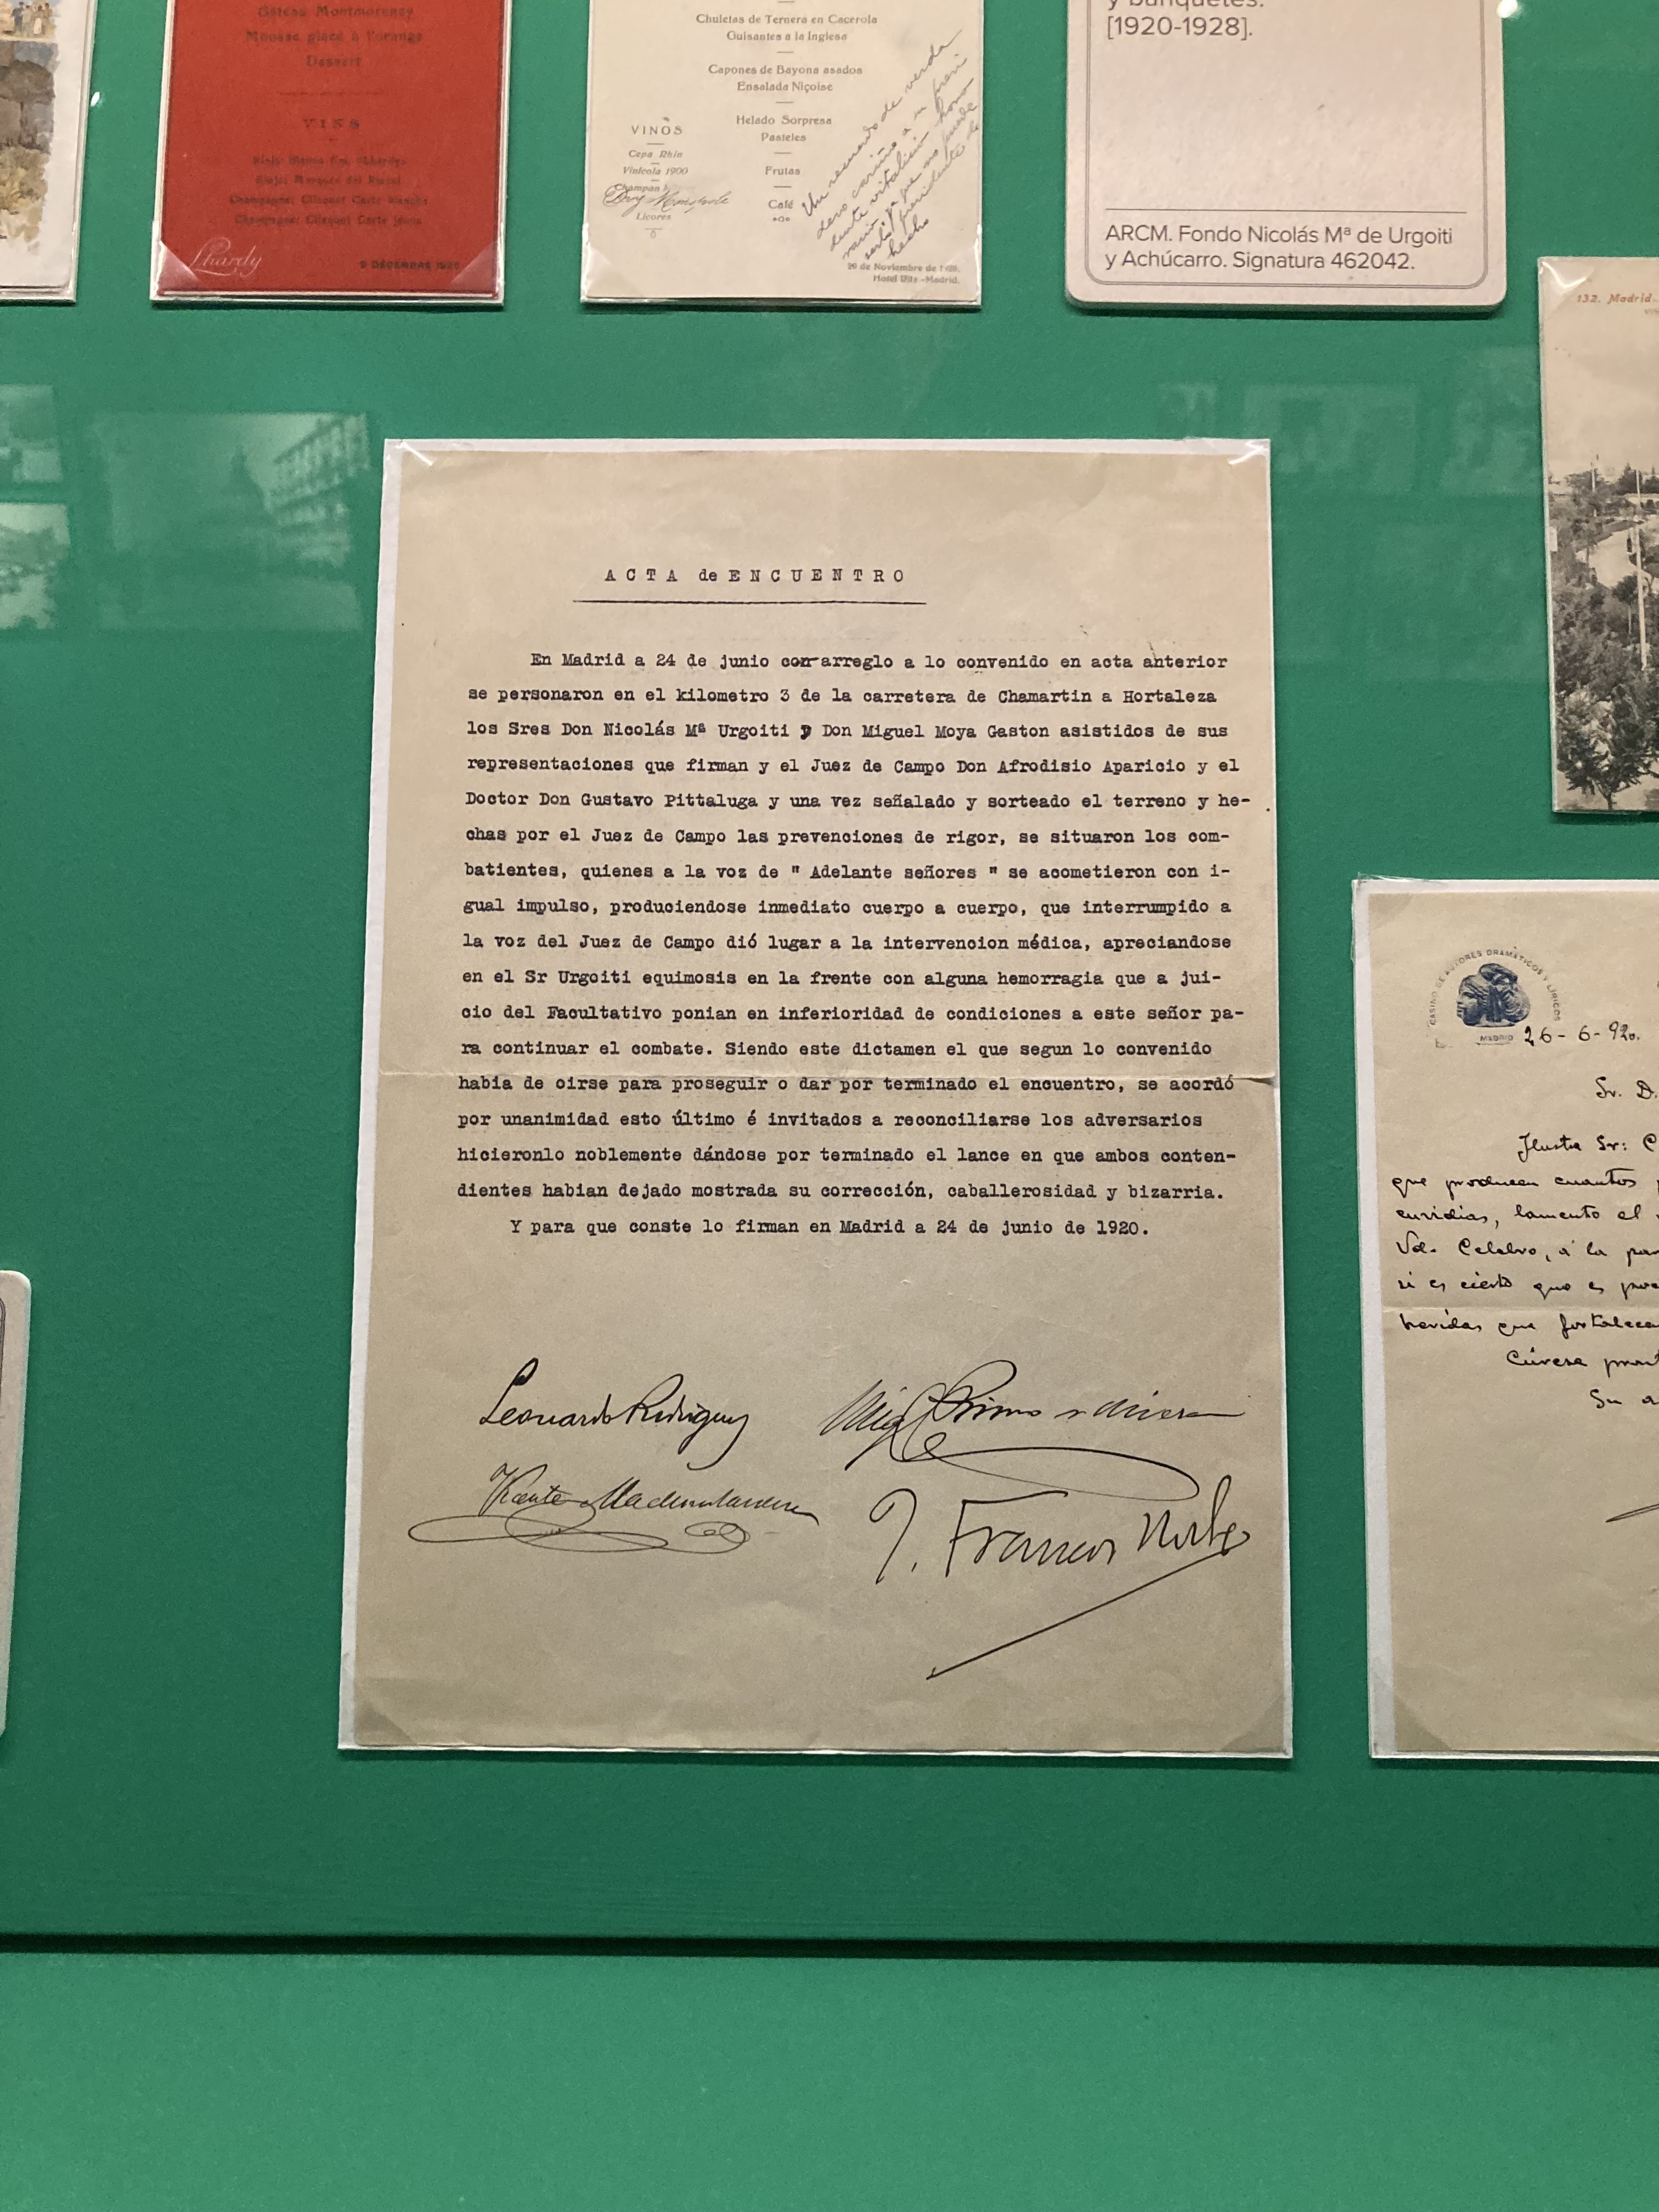 Gateau Montmorency
Mousse glacé à l'orange
Dessert
VINS
Lhardy
9 DÉCEMBRE 1920
Chuletas de Ternera en Cacerola
Guisantes a la Inglesa
Capones de Bayona asados
Ensalada Niçoise
Helado Sorpresa
Pasteles
Frutas
Café
VINOS
Cepa Rhin
Vinícola 1900
Champan
Licores
Un recuerdo de verda
dero cariño a su presi
dente vitalicio hono
rario, ya que no puede
serlo presidente de
hecho
Hotel Ritz -Madrid.
y banquetes.
[1920-1928].
ARCM. Fondo Nicolás Mª de Urgoiti
y Achúcarro. Signatura 462042.
132. Madrid
ACTA de ENCUENTRO
En Madrid a 24 de junio con arreglo a lo convenido en acta anterior
se personaron en el kilometro 3 de la carretera de Chamartin a Hortaleza
los Sres Don Nicolás Mª Urgoiti y Don Miguel Moya Gaston asistidos de sus
representaciones que firman y el Juez de Campo Don Afrodisio Aparicio y el
Doctor Don Gustavo Pittaluga y una vez señalado y sorteado el terreno y he-
chas por el Juez de Campo las prevenciones de rigor, se situaron los com-
batientes, quienes a la voz de " Adelante señores " se acometieron con i-
gual impulso, produciendose inmediato cuerpo a cuerpo, que interrumpido a
la voz del Juez de Campo dió lugar a la intervencion médica, apreciandose
en el Sr Urgoiti equimosis en la frente con alguna hemorragia que a jui-
cio del Facultativo ponian en inferioridad de condiciones a este señor pa-
ra continuar el combate. Siendo este dictamen el que segun lo convenido
habia de oirse para proseguir o dar por terminado el encuentro, se acordó
por unanimidad esto último é invitados a reconciliarse los adversarios
hicieronlo noblemente dándose por terminado el lance en que ambos conten-
dientes habian dejado mostrada su corrección, caballerosidad y bizarria.
Y para que conste lo firman en Madrid a 24 de junio de 1920.
Leonardo Rodriguez
Miguel Primo de Rivera
Vicente
J. Francos
CASINO DE AUTORES DRAMÁTICOS Y LIRICOS
MADRID
26-6-920.
Sr. D.
Ilustre Sr:
que producen cuantos
envidias, lamento el
Vd. Celebro, á la
si es cierto que es
heridas que fortalecen
Cúrese
Su